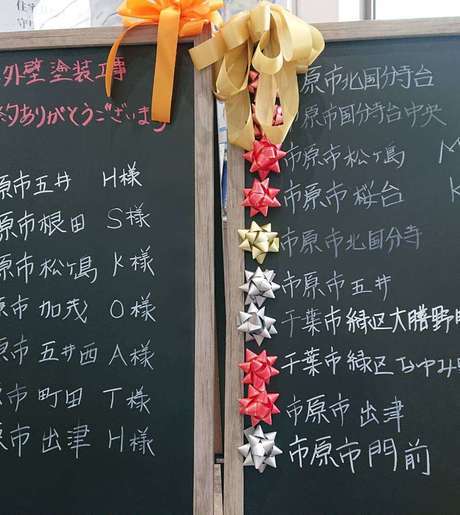 外壁塗装工事
ありがとうございます
原市五井 H様
市原市根田 S様
原市松ヶ島 K様
原市加茂 O様
原市五井西 A様
原市町田 T様
原市出津 H様
原市北国分寺台
原市国分寺台中央
市原市松ヶ島 M
市原市桜台 K
市原市北国分寺
市原市五井
千葉市緑区大膳野町
千葉市緑区あゆみ野
市原市出津
市原市門前